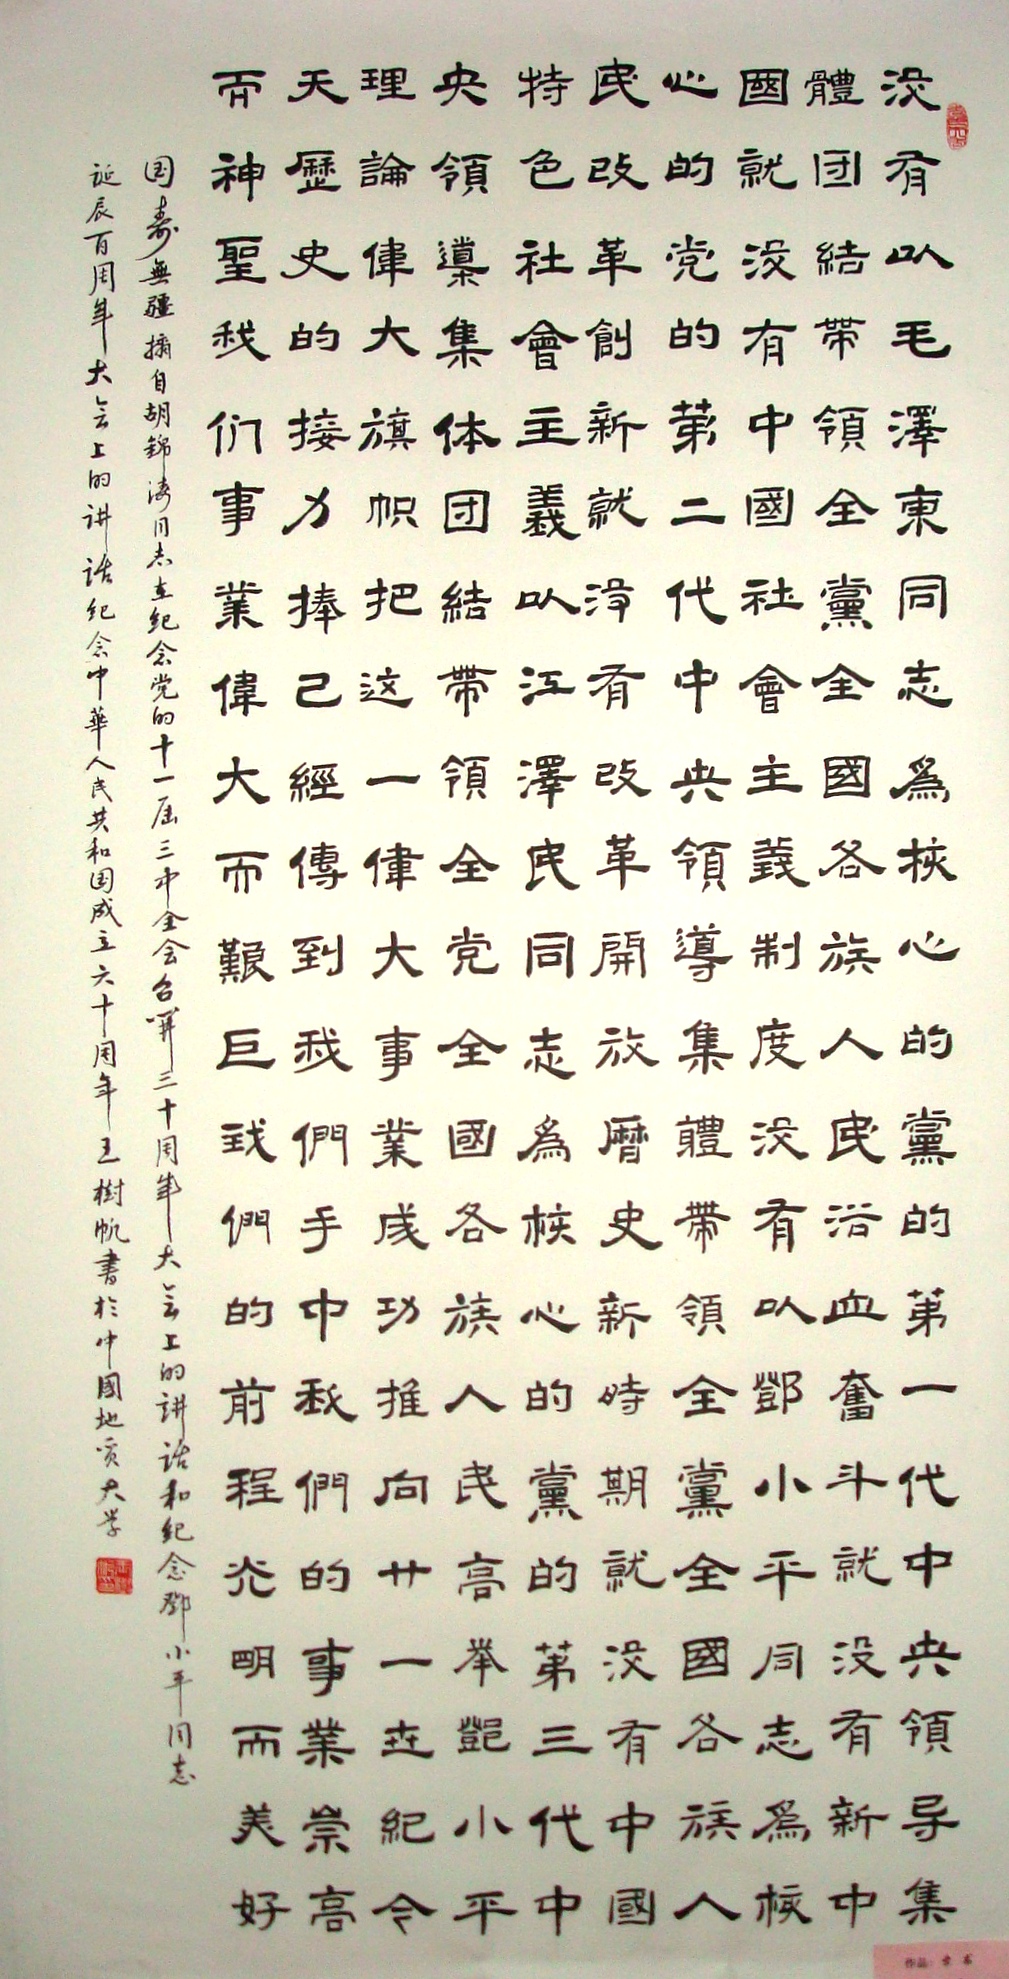 没有以毛澤東同志爲核心的黨的第一代中央領导集
體团結帶領全黨全國各族人民浴血奮斗就没有新中
國就没有中國社會主義制度没有以鄧小平同志爲核
心的党的第二代中央領導集體帶領全黨全國各族人
民改革創新就没有改革開放曆史新時期就没有中國
特色社會主義以江澤民同志爲核心的黨的第三代中
央領導集体团結帶領全党全國各族人民高举鄧小平
理論偉大旗帜把这一偉大事業成功推向廿一世紀今
天歷史的接力捧己經傳到我們手中我們的事業崇高
而神聖我们事業偉大而艱巨我們的前程光明而美好
国壽無疆摘自胡錦涛同志在纪念党的十一届三中全会召開三十周年大会上的讲话和纪念鄧小平同志
诞辰百周年大会上的讲话纪念中華人民共和国成立六十周年王樹帆書於中國地质大学
作品: